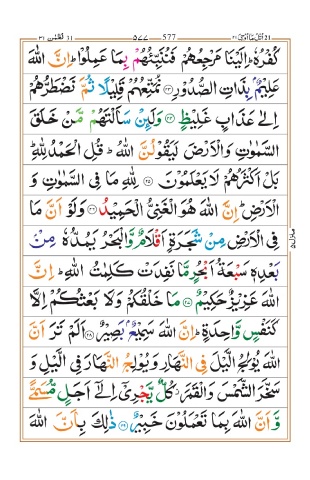 لقمٰن ٣١ ٥٧٧ 577 اتل ما اوحی ٢١
كُفْرُهٗ ؕ اِلَيْنَا مَرْجِعُهُمْ فَنُنَبِّئُهُمْ بِمَا عَمِلُوْا ؕ اِنَّ اللّٰهَ
عَلِيْمٌۢ بِذَاتِ الصُّدُوْرِ ﴿٢٣﴾ نُمَتِّعُهُمْ قَلِيْلًا ثُمَّ نَضْطَرُّهُمْ
اِلٰى عَذَابٍ غَلِيْظٍ ﴿٢٤﴾ وَلَئِنْ سَاَلْتَهُمْ مَّنْ خَلَقَ
السَّمٰوٰتِ وَالْاَرْضَ لَيَقُوْلُنَّ اللّٰهُ ؕ قُلِ الْحَمْدُ لِلّٰهِ ؕ
بَلْ اَكْثَرُهُمْ لَا يَعْلَمُوْنَ ﴿٢٥﴾ لِلّٰهِ مَا فِى السَّمٰوٰتِ وَ
الْاَرْضِ ؕ اِنَّ اللّٰهَ هُوَ الْغَنِىُّ الْحَمِيْدُ ﴿٢٦﴾ وَلَوْ اَنَّ مَا
فِى الْاَرْضِ مِنْ شَجَرَةٍ اَقْلَامٌ وَّالْبَحْرُ يَمُدُّهٗ مِنْۢ
بَعْدِهٖ سَبْعَةُ اَبْحُرٍ مَّا نَفِدَتْ كَلِمٰتُ اللّٰهِ ؕ اِنَّ
اللّٰهَ عَزِيْزٌ حَكِيْمٌ ﴿٢٧﴾ مَا خَلْقُكُمْ وَلَا بَعْثُكُمْ اِلَّا
كَنَفْسٍ وَّاحِدَةٍ ؕ اِنَّ اللّٰهَ سَمِيْعٌۢ بَصِيْرٌ ﴿٢٨﴾ اَلَمْ تَرَ اَنَّ
اللّٰهَ يُوْلِجُ الَّيْلَ فِى النَّهَارِ وَيُوْلِجُ النَّهَارَ فِى الَّيْلِ وَ
سَخَّرَ الشَّمْسَ وَالْقَمَرَ ؗ كُلٌّ يَّجْرِىْۤ اِلٰٓى اَجَلٍ مُّسَمًّى
وَّاَنَّ اللّٰهَ بِمَا تَعْمَلُوْنَ خَبِيْرٌ ﴿٢٩﴾ ذٰلِكَ بِاَنَّ اللّٰهَ
منزل ٥